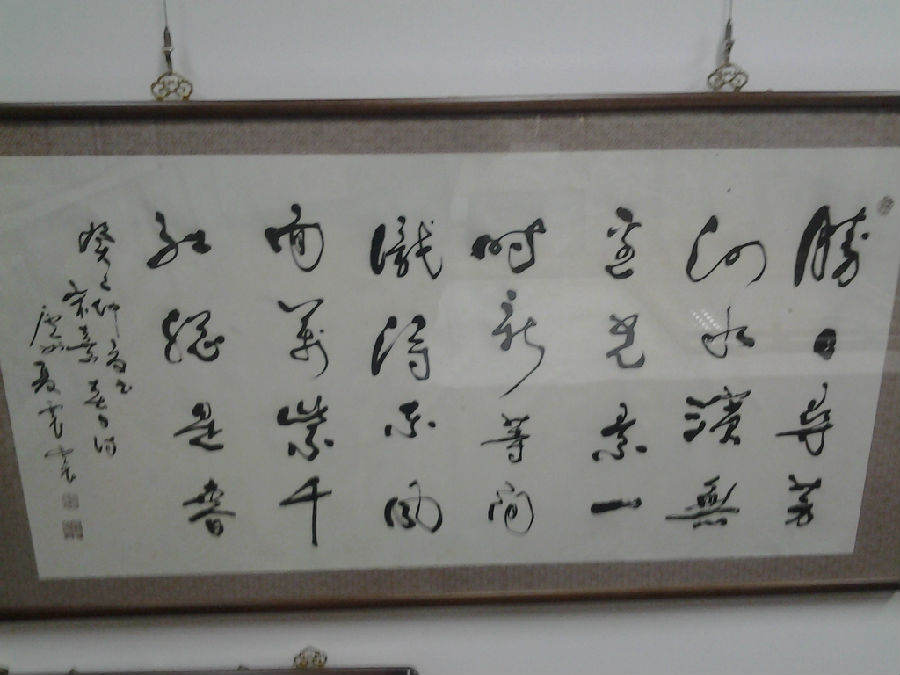 勝日尋芳
泗水濱無
邊光景一
時新等閒
識得東風
面萬紫千
紅總是春
癸巳仲夏書
朱熹春日詩